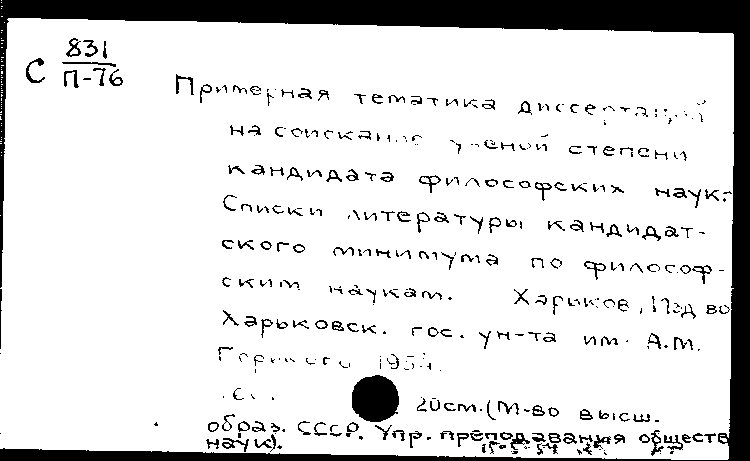 С 831
П-76
Примерная тематика диссертаций
на соискание ученой степени
кандидата философских наук.
Списки литературы кандидат-
ского минимума по философ-
ским наукам. Харьков, Изд во
Харьковск. гос. ун-та им. А.М.
Горького 1954.
с. 20см. (М-во высш.
образ. СССР. Упр. преподавания обществ
наук).
15-5-54